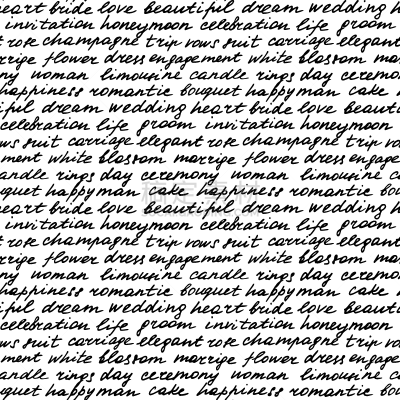 heart bride love beautiful dream wedding h
invitation honeymoon celebration life groom
t rose champagne trip vows suit carriage elegant
rrige flower dress engagement white blossom mar
ny woman limousine candle rings day ceremo
happiness romantic bouquet happy man cake h
iful dream wedding heart bride love beauti
celebration life groom invitation honeymoon
ws suit carriage elegant rose champagne trip v
ment white blossom marrige flower dress engage
andle rings day ceremony woman limousine c
uquet happy man cake happiness romantic bo
heart bride love beautiful dream wedding h
invitation honeymoon celebration life groom
t rose champagne trip vows suit carriage elegant
rrige flower dress engagement white blossom mar
ny woman limousine candle rings day ceremo
happiness romantic bouquet happy man cake h
iful dream wedding heart bride love beauti
celebration life groom invitation honeymoon
ws suit carriage elegant rose champagne trip v
ment white blossom marrige flower dress engage
andle rings day ceremony woman limousine c
uquet happy man cake happiness romantic bo